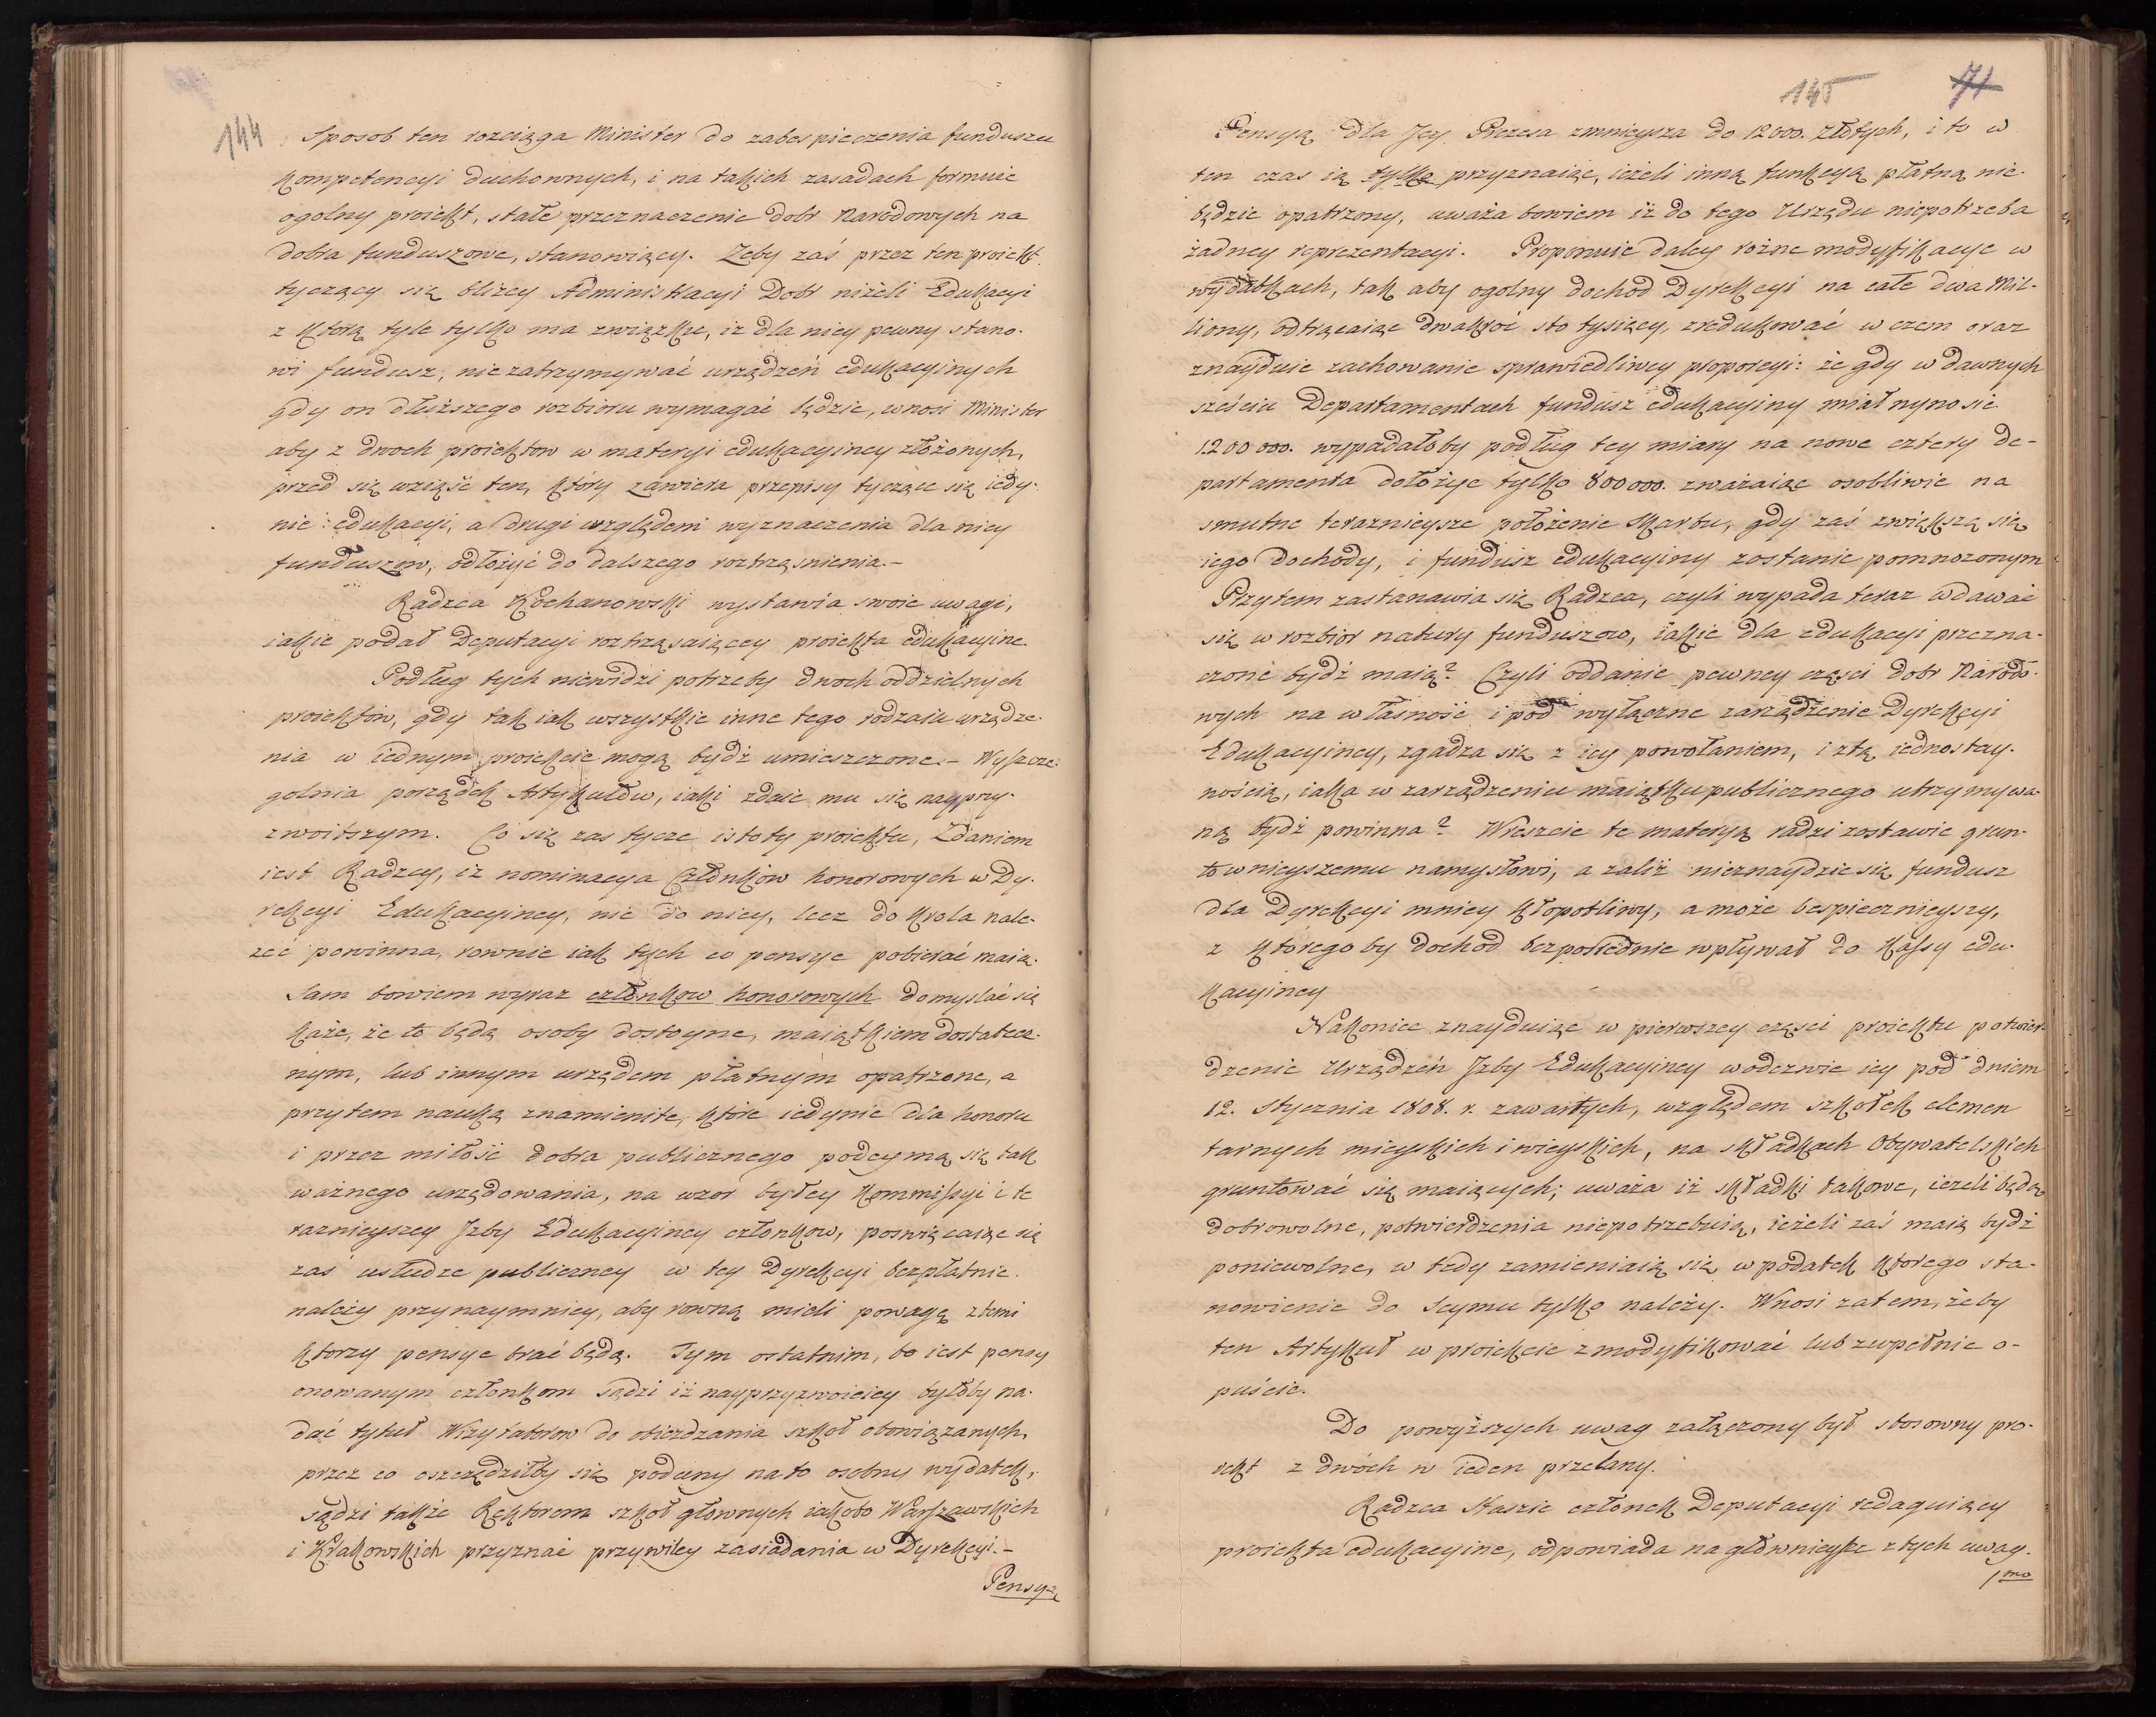 144
Sposob ten rozciąga Minister do zabespieczenia funduszu
kompetencyi duchownych, i na takich zasadach formuie
ogolny proiekt, stałe przeznaczenie dobr Narodowych na
dobra funduszowe, stanowiący. Żeby zaś przez ten proiekt
tyczący się bliżey Administracyi Dobr niżeli Edukacyi
z którą tyle tylko ma związku, iż dla niey pewny stano-
wi fundusz, nie zatrzymywać urządzeń edukacyinych
gdy on dłuższego rozbioru wymagać będzie, wnosi Minister
aby z dwoch proiektow w materyi edukacyiney złożonych,
przed się wziąść ten, który zawiera przepisy tyczące się iedy-
nie edukacyi, a drugi względem wyznaczenia dla niey
funduszów, odłożyć do dalszego roztrząśnienia.-
Radzca Kochanowski wystawia swoie uwagi,
iakie podał Deputacyi roztrząsaiącey proiekta edukacyine.
Podług tych niewidzi potrzeby dwoch oddzielnych
proiektów, gdy tak iak wszystkie inne tego rodzaiu urządze-
nia w iednym proiekcie mogą bydź umieszczone.- Wyszcze-
golnia porządek Artykułów, iaki zdaie mu się nayprzy-
zwoitszym. Co się zas tycze istoty proiektu, Zdaniem
iest Radzcy, iż nominacya Członków honorowych w Dy-
rekcyi Edukacyiney, nie do niey, lecz do Krola nale-
żeć powinna, rownie iak tych co pensye pobierać maią.
Sam bowiem wyraz członkow honorowych domyslać się
każe, że to będą osoby dostoyne, maiątkiem dostatecz-
nym, lub innym urzędem płatnym opatrzone, a
przytem nauką znamienite, które iedynie dla honoru
i przez miłość dobra publicznego podeymą się tak
ważnego urzędowania, na wzor byłey Kommissyi i te
raznieyszey Izby Edukacyiney członkow, poswięcaiąc się
zaś usłudze publiczney w tey Dyrekcyi bezpłatnie
należy przynaymniey, aby rowną mieli powagę z temi
ktorzy pensye brać będą. Tym ostatnim, to iest pensy
onowanym członkom sądzi iż nayprzyzwoiciey byłoby na-
dać tytuł Wizytatorow do obieżdżania szkoł obowiązanych,
przez co oszczędziłby się podany na to osobny wydatek,
sądzi także Rektorom szkoł głownych iakoto Warszawskich
i Krakowskich przyznać przywiley zasiadania w Dyrekcyi.-
Pensyą
145
71
Pensyą dla Jey Prezesa zmnieysza do 12000. złotych, i to w
ten czas ią tylko przyznaiąc, ieżeli inną funkcyą płatną nie-
będzie opatrzony, uważa bowiem iż do tego Urzędu niepotrzeba
żadney reprezentacyi. Proponuie daley rożne modyfikacye w
wydatkach, tak aby ogolny dochod Dyrekcyi na całe dwa Mil-
liony, odtrącaiąc dwakroć sto tysięcy, zredukować w czem oraz
znayduie zachowanie sprawiedliwey proporcyi: że gdy w dawnych
sześciu Departamentach fundusz edukacyiny miał wynosic
1200 000. wypadałoby podług tey miary na nowe cztery de-
partamenta dołożyc tylko 800 000. zważaiąc osobliwie na
smutne teraznieysze położenie Skarbu, gdy zaś zwiększą się
iego dochody, i fundusz edukacyiny zostanie pomnożonym
Przytem zastanawia się Radzca, czyli wypada teraz wdawać
się w rozbior natury funduszow, iakie dla edukacyi przezna-
czone bydź maią? Czyli oddanie pewney częsci dobr Narodo-
wych na własność i pod wyłączne zarządzenie Dyrekcyi
Edukacyiney, zgadza się z iey powołaniem, i z tą iednostay-
nością, iaka w zarządzeniu maiątku publicznego utrzymywa-
ną bydź powinna? Wreszcie te materyą radzi zostawic grun-
townieyszemu namysłowi, a zaliż nieznaydzie się fundusz
dla Dyrekcyi mniey kłopotliwy, a może bespiecznieyszy,
z którego by dochod bezpośrednie wpływał do Kassy edu-
kacyiney
Nakoniec znayduiąc w pierwszey częsci proiektu potwier-
dzenie Urządzeń Izby Edukacyiney w odezwie iey pod dniem
12. Stycznia 1808. r. zawartych, względem szkołek elemen
tarnych mieyskich i wieyskich, na składkach Obywatelskich
gruntować się maiących; uważa iż składki takowe, ieżeli będą
dobrowolne, potwierdzenia niepotrzebuią, ieżeli zaś maią bydź
poniewolne, w tedy zamieniaią się w podatek którego sta-
nowienie do Seymu tylko należy. Wnosi zatem, żeby
ten Artykuł w proiekcie zmodyfikować lub zupełnie o-
puścic.
Do powyższych uwag załączony był stosowny pro-
iekt z dwóch w ieden przelany.
Radzca Staszic członek Deputacyi redaguiący
proiekta edukacyine, odpowiada na głownieysze z tych uwag.
1mo